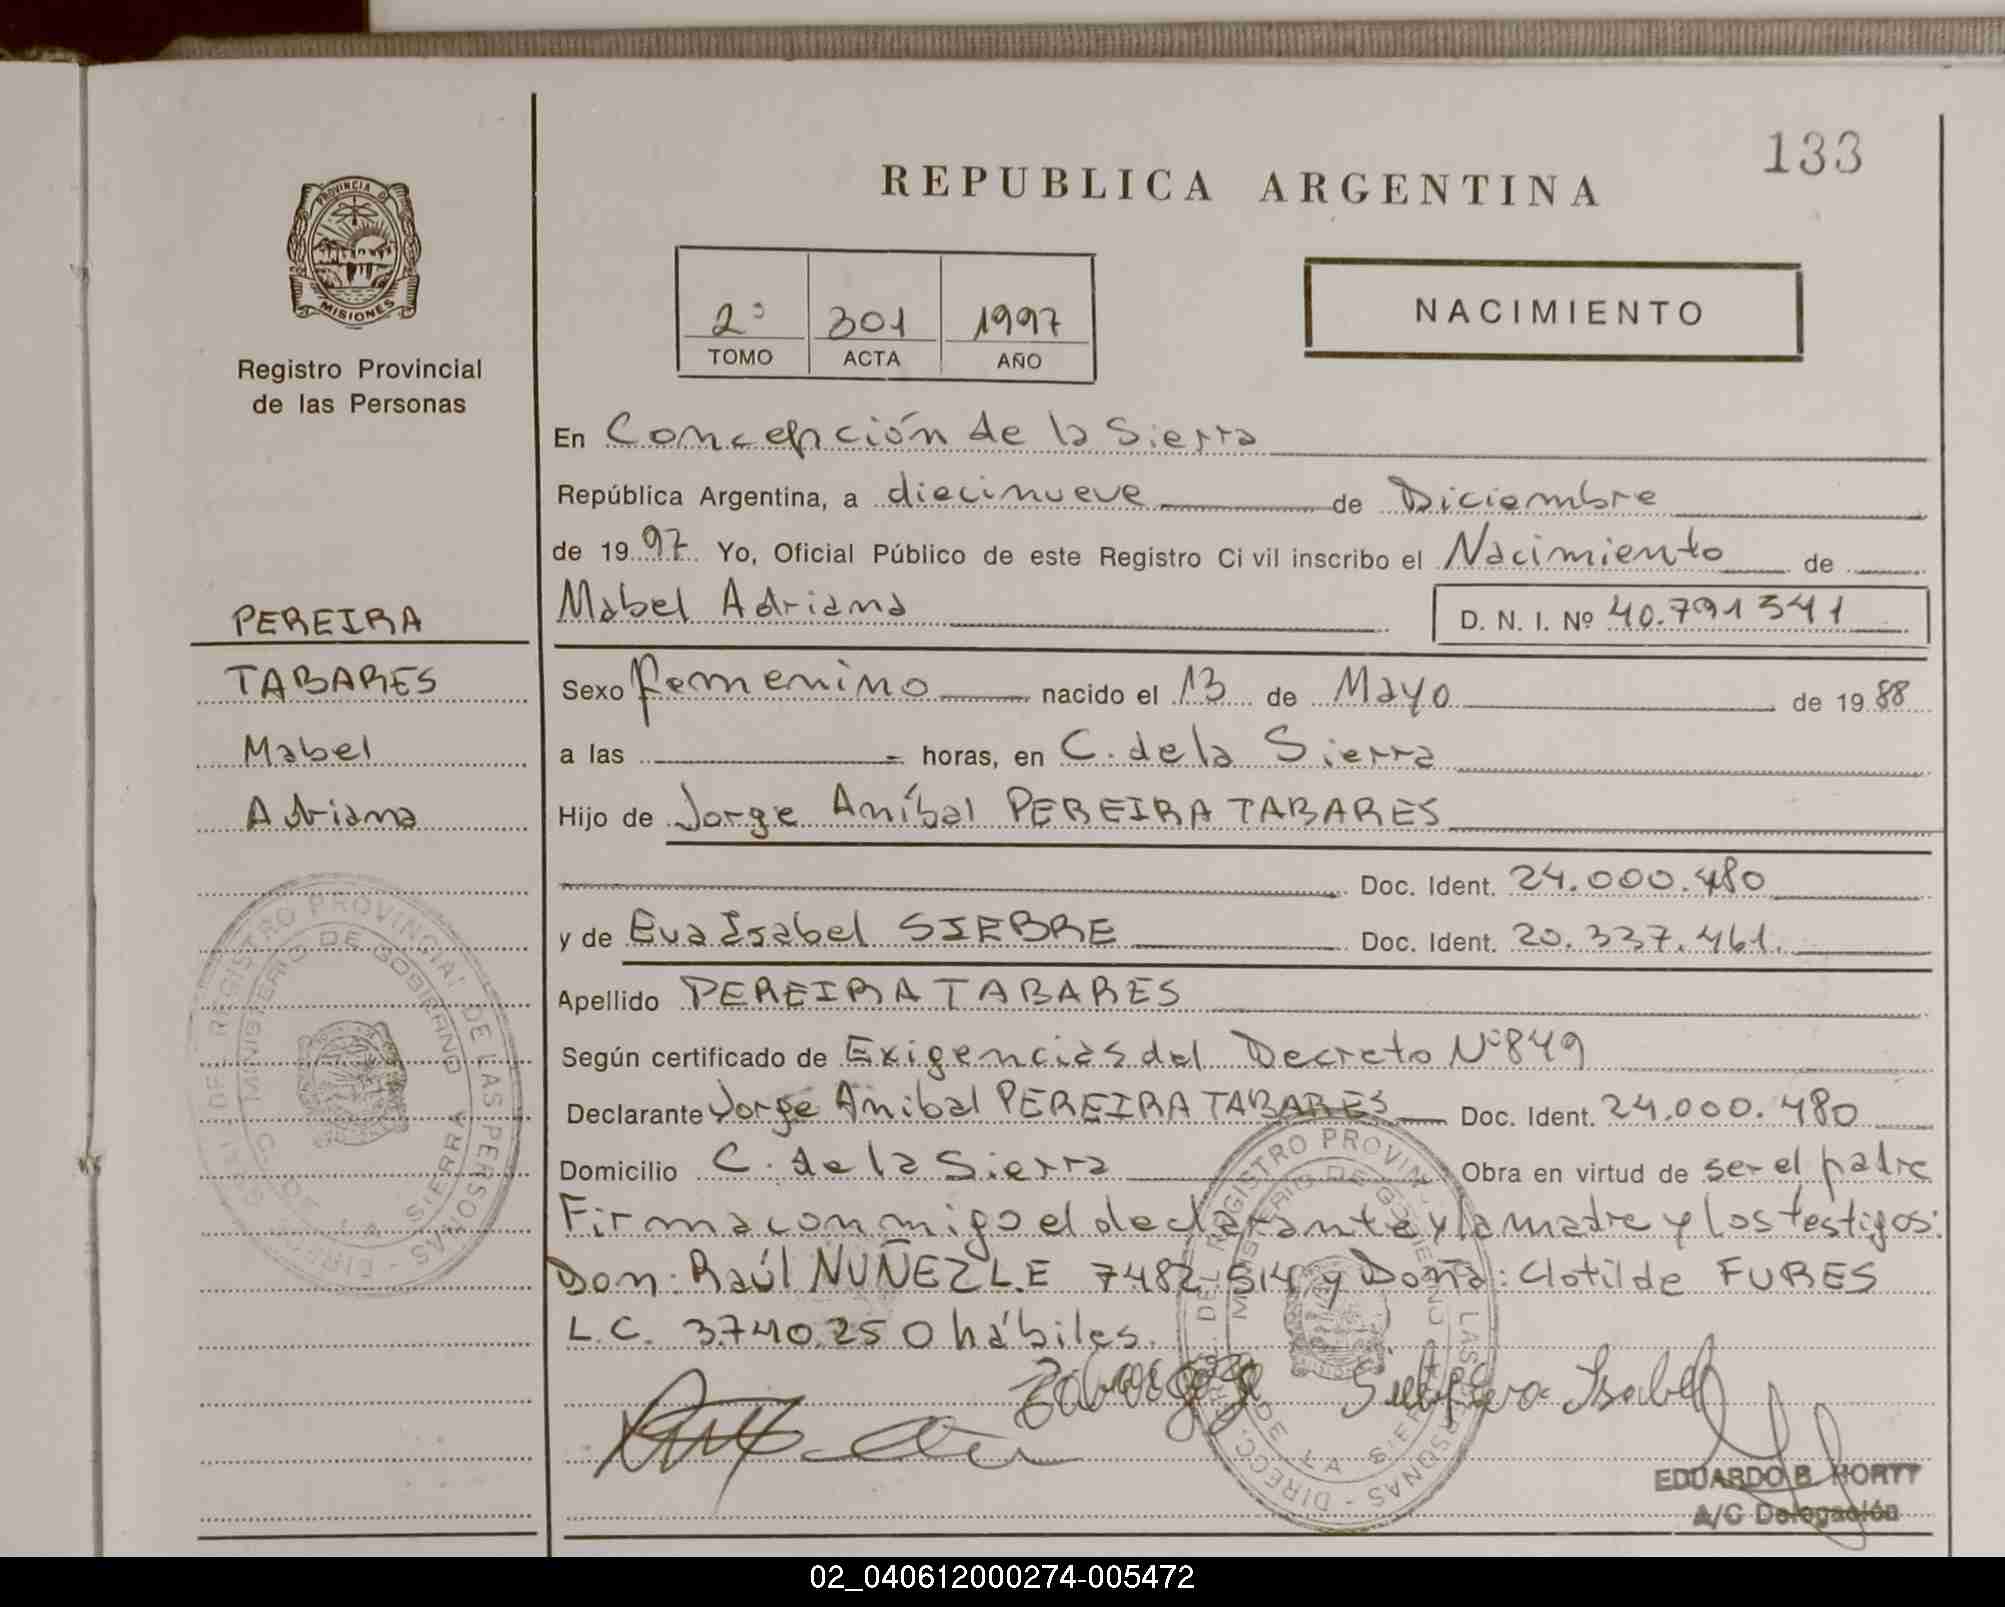 133
REPUBLICA ARGENTINA
PROVINCIA D
MISIONES
Registro Provincial
de las Personas
2º 301 1997
TOMO ACTA AÑO
NACIMIENTO
En Concepción de la Sierra
República Argentina, a diecinueve de Diciembre
de 1997 Yo, Oficial Público de este Registro Civil inscribo el Nacimiento de
Mabel Adriana D. N. I. Nº 40.791341
PEREIRA
TABARES
Mabel
Adriana
Sexo femenino nacido el 13 de Mayo de 1988
a las horas, en C. de la Sierra
Hijo de Jorge Aníbal PEREIRA TABARES
Doc. Ident. 24.000.480
y de Eva Isabel SIEBRE Doc. Ident. 20.337.461.
Apellido PEREIRA TABARES
Según certificado de Exigencias del Decreto Nº 849
Declarante Jorge Anibal PEREIRA TABARES Doc. Ident. 24.000.480
Domicilio C. de la Sierra Obra en virtud de ser el padre
Firma conmigo el declarante y la madre y los testigos:
Don: Raúl NUÑEZ L.E 7482 514 y Doña: Clotilde FURES
L.C. 3.740.250 hábiles.
Isabel
EDUARDO B. HORTT
A/C Delegación
DIRECC. DEL REGISTRO PROVINCIAL DE LAS PERSONAS
MINISTERIO DE GOBIERNO
C. DE LA SIERRA
02_040612000274-005472